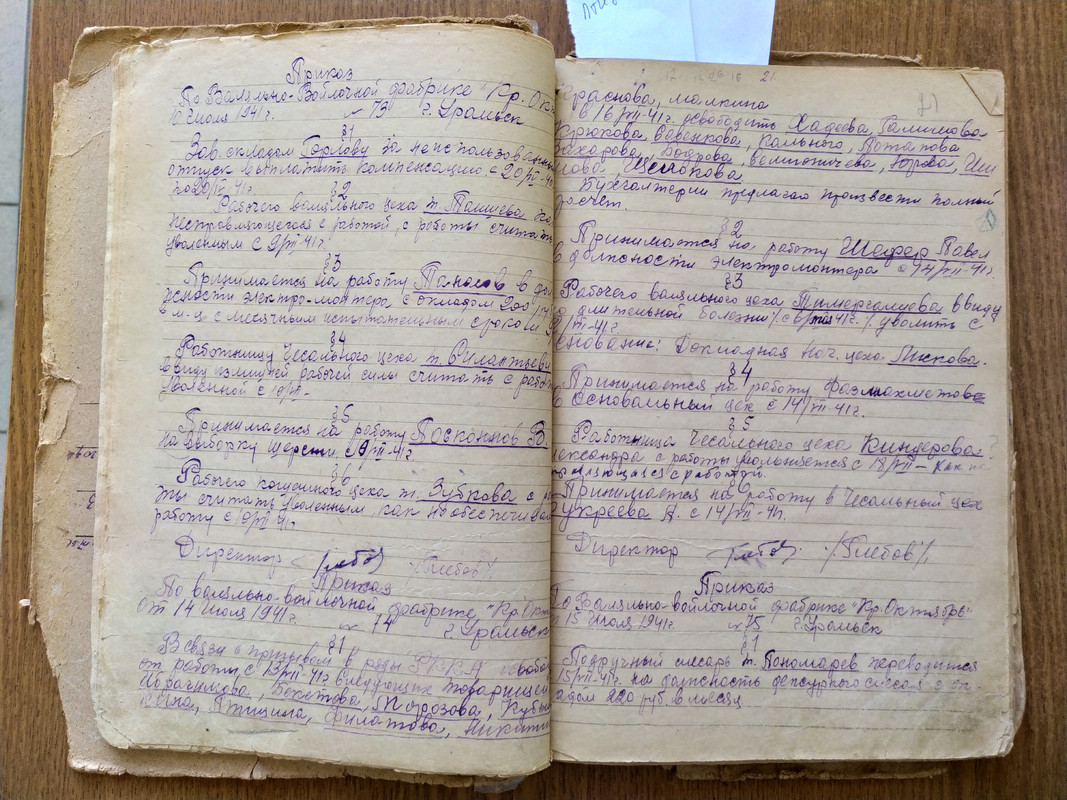 Приказ
По Валяльно-Войлочной фабрике "Кр. Ок
10 Июля 1941г. № 73 г. Уральск
§1
Зав. складом Горлову за неиспользованный
отпуск выплатить компенсацию с 20/VII-41
по 20/VII-41г.
§2
Рабочего валяльного цеха т.
несправляющегося с работой, с работы считать
уволенным с 9/VII-41г.
§3
Принимается на работу Панасов в дол
жности электро-монтера с окладом 200
в м-ц с месячным испытательным сроком
§4
Работницу Чесального цеха т. Филантьеву
ввиду излишней рабочей силы считать с работы
Уволенной с 10/VII-
§5
Принимается на работу Посканнов В.
на выборку шерсти с 9/VII-41г
§6
Рабочего кошомного цеха т. Зубкова с ра
ты считать уволенным, как необеспечивш
работу с 10/VII-41г.
Директор (Глебов)
Приказ
По валяльно-войлочной фабрике "Кр. Окт
от 14 Июля 1941г. № 74 г. Уральск
§1
В связи с призывом в ряды РККА освобод
от работы с 13/VII-41г следующих товарищей
Ибрагимова, Бекетова, Морозова, Кубы
Птицина, Филатова, Никити
21.
Краснова, Малкина
в 16/VII-41г. освободить Хадеева, Галичиова
Крюкова, Вавенкова, Кального, Потапова
Захарова, Бодрова, Юрова, Ши
пова, Щелокова
Бухгалтерии предлагаю произвести полный
расчет.
§2
Принимается на работу Шефер Павел
в должности электромонтера с 14/VII-41г.
§3
Рабочего валяльного цеха Тимергалиева ввиду
длительной болезни /с 6/ 41г./ уволить с
/VII-41г.
снование: Докладная нач. цеха Лискова.
§4
Принимается на работу Фазмахметова
в Основальный цех с 14/VII-41г.
§5
Работница Чесального цеха Киндерова
лександра с работы увольняется с 18/VII- как не
справляющаяся с работой.
§6
Принимается на работу в Чесальный цех
Букреева А. с 14/VII-41г.
Директор /Глебов/
Приказ
По Валяльно-войлочной фабрике "Кр. Октябрь"
15 Июля 1941г. № 75 г. Уральск
§1
Подручный слесарь т. Пономарев переводится
15/VII-41г. на должность дежурного слесаря с ок-
ладом 220 руб. в месяц